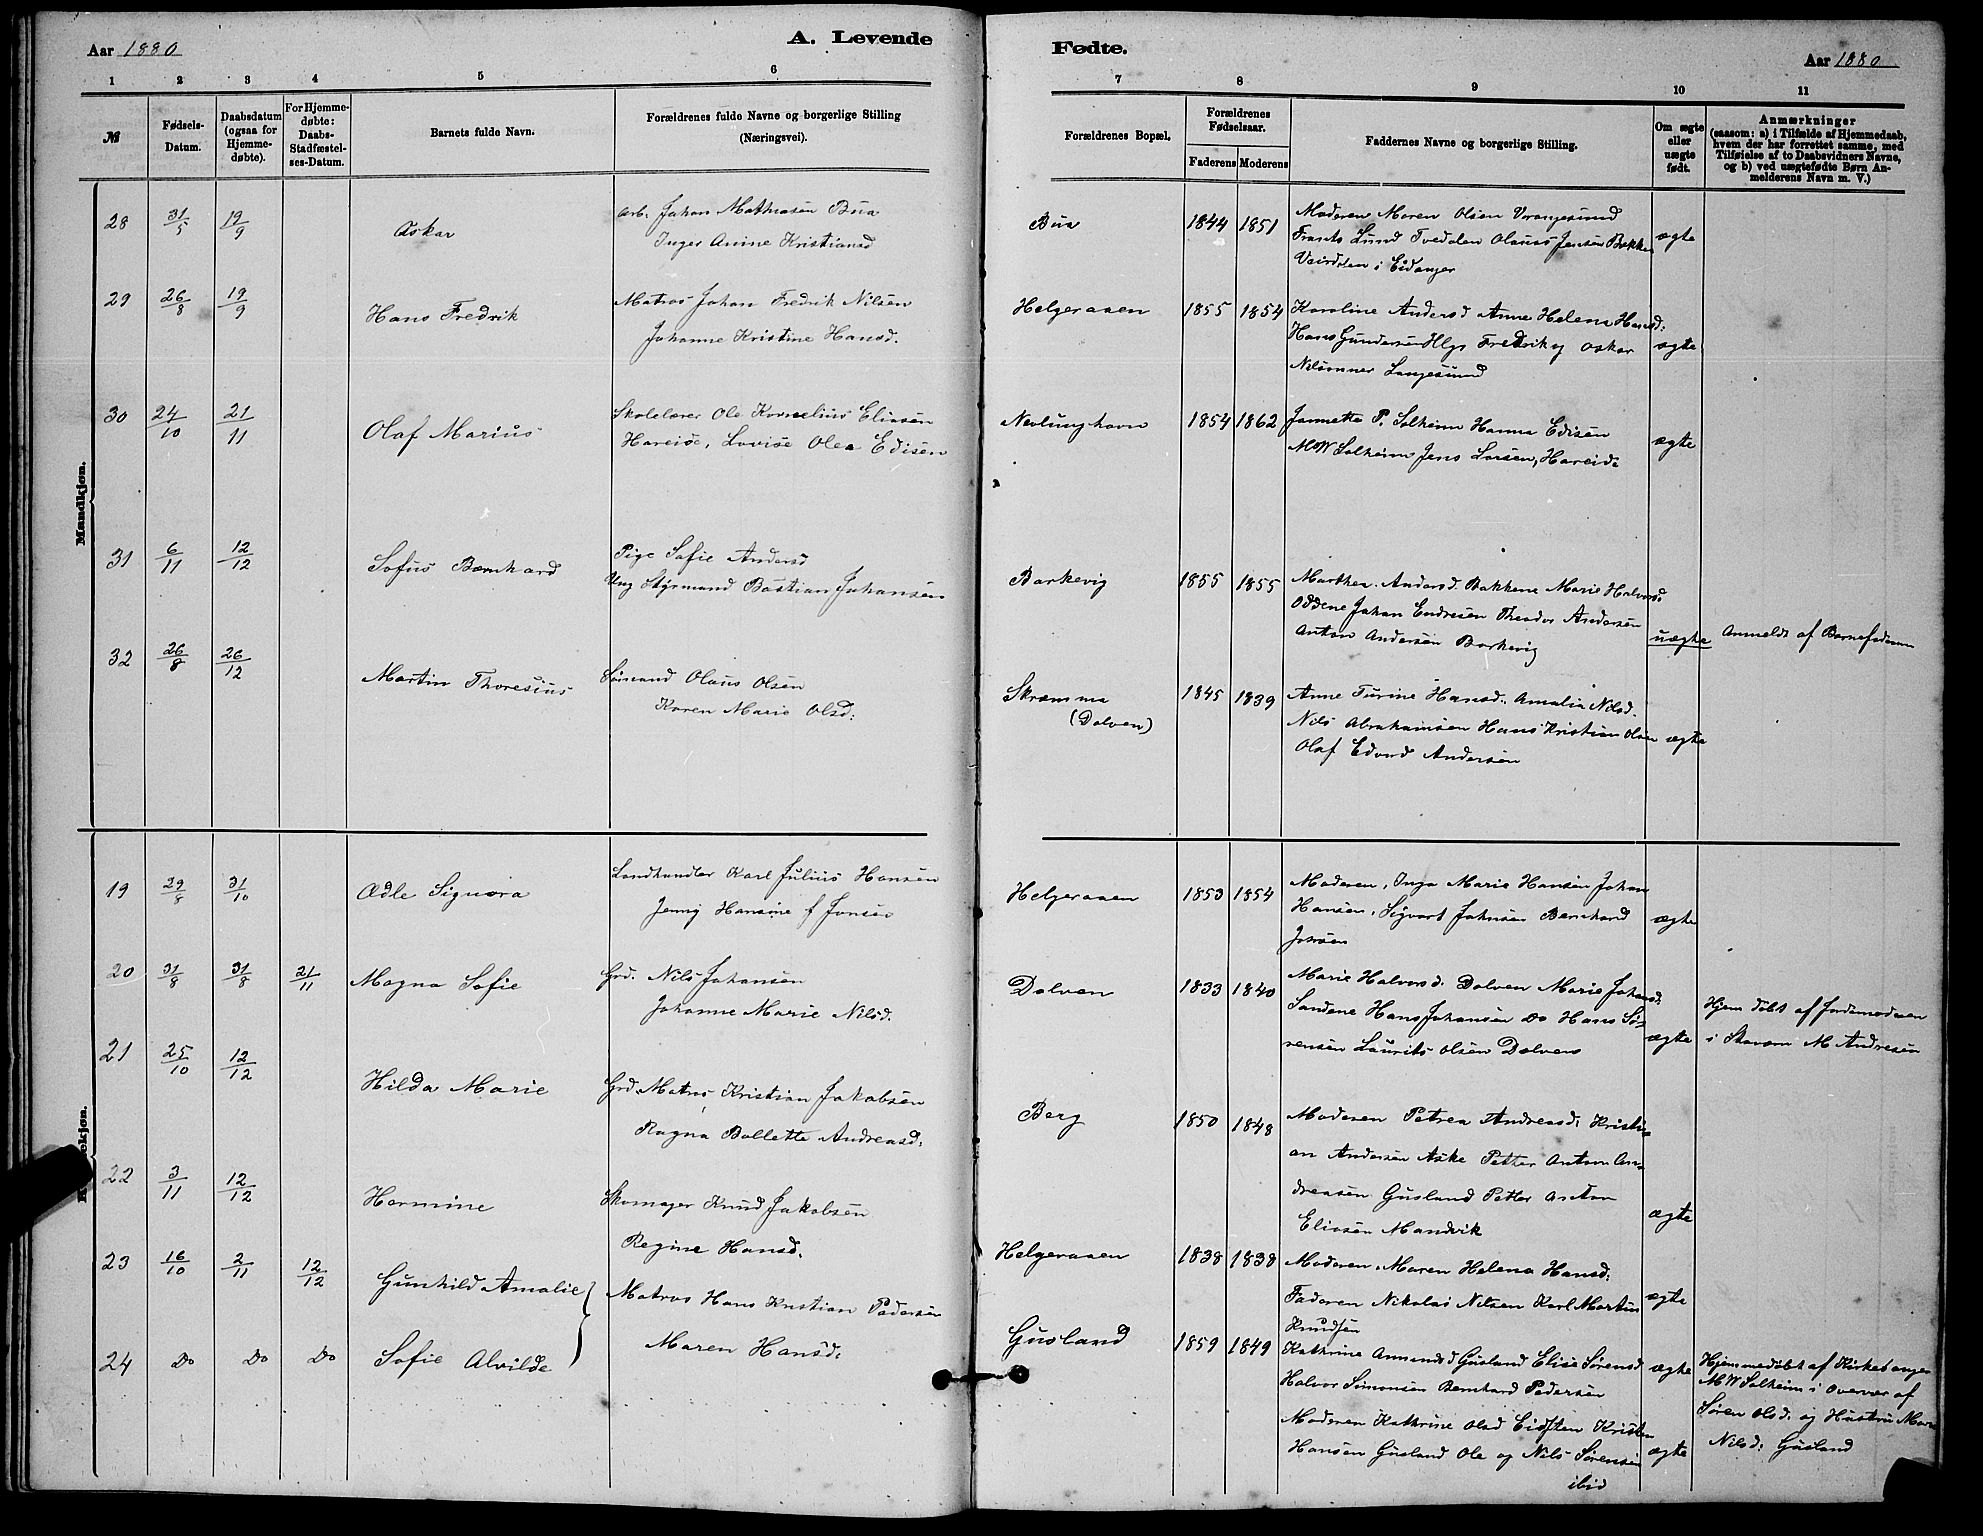 Aar 1880
A. Levende
1 2 3 4 5 6
№
Fødsels-Datum.
Daabsdatum (ogsaa for Hjemmedøbte).
For Hjemmedøbte: Daabs-Stadfæstelses-Datum.
Barnets fulde Navn.
Forældrenes fulde Navne og borgerlige Stilling (Næringsvei).
Mandkjøn.
28 31/5 19/9 Oskar
Arb. Johan Mathiasen Bua
Inger Anine Kristiansd
29 26/8 19/9 Hans Fredrik
Matros Johan Fredrik Nilsen
Johanne Kristine Hansd.
30 24/10 21/11 Olaf Marius
Skolelærer Ole Kornelius Eliasen
Hareide, Lovise Olea Edisen
31 6/11 12/12 Sofus Bernhard
Pige Sofie Andersd
Ung Styrmand Bastian Johansen
32 26/8 26/12 Martin Thoresius
Sømand Olaus Olsen
Karen Marie Olsd:
19 29/8 31/10 Ædle Signora
Landhandler Karl Julius Hansen
Jenny Hansine f Jonsen
20 31/8 31/8 21/11 Magna Sofie
Grd. Nils Johansen
Johanne Marie Nilsd.
21 25/10 12/12 Hilda Marie
Grd. Matros Kristian Jakobsen
Ragna Bollette Andreasd:
22 3/11 12/12 Hermine
Skomager Knud Jakobsen
Regine Hansd.
23 16/10 2/11 12/12 Gunhild Amalie
Matros Hans Kristian Pedersen
24 Do Do Do Sofie Alvilde
Maren Hansd:
Fødte.
Aar 1880
7 8 9 10 11
Forældrenes Bopæl.
Forældrenes Fødselsaar.
Faderens Moderens
Faddernes Navne og borgerlige Stilling.
Om ægte eller uægte født.
Anmærkninger
(saasom: a) i Tilfælde af Hjemmedaab,
hvem der har forrettet samme, med
Tilføielse af to Daabsvidners Navne,
og b) ved uægtefødte Børn An-
melderens Navn m. V.)
Bua 1844 1851
Moderen Maren Olsen Vrangesund
Frants Lund Tvedalen Olaus Jensen Bakken
i Eidanger
ægte
Helgeraaen 1855 1854
Karoline Andersd Anne Helena Hansd:
Hans Gundersen Hlgr Fredrik og Oskar
Nilsønner Langesund
ægte
Nevlunghavn 1854 1862
Jannette P. Solheim Hanna Edisen
MW Solheim Jens Larsen, Hareide
ægte
Barkevig 1855 1855
Marthea Andersd. Bakkene Marie Halvorsd:
Oddene Johan Endresen Theodor Andersen
Anton Andersen Barkevig
uægte
Anmeldt af Barnefaderen
Skramma (Dolven) 1845 1839
Anne Turine Hansd. Amalia Nilsd.
Nils Abrahamsen Hans Kristian Olsen
Olaf Edvard Andersen
ægte
Helgeraaen 1853 1854
Moderen, Inga Marie Hansen Johan
Hansen, Sigvart Johnsen Bernhard
Johnsen
ægte
Dolven 1833 1840
Marie Halvorsd. Dolven Marie Johansd:
Sandene Hans Johansen Do Hans Sø-
rensen Laurits Olsen Dolven
ægte
Hjem døbt af Jordemoderen
i Stavern M Andresen
Berg 1850 1848
Moderen Petrea Andreasd: Kristi-
an Andersen Aske Petter Anton An-
dreasen Gusland Petter Anton
Eliasen Mandvik
ægte
Helgeraaen 1838 1838
Moderen, Maren Helena Hansd:
Faderen Nikolai Nilsen Karl Martin
Knudsen
ægte
Gusland 1859 1849
Kathrine Amundsd Gusland Elise Sørensd
Halvor Simonsen Bernhard Pedersen
ægte
Moderen Kathrine Olsd Eidsten Kristen
Hansen Gusland Ole og Nils Sørensen
ibid
ægte
Hjemmedøbt af Kirkesanger
MW Solheim i overvær af
Søren Olsd. og Hustru Maren
Nilsd: Gusland